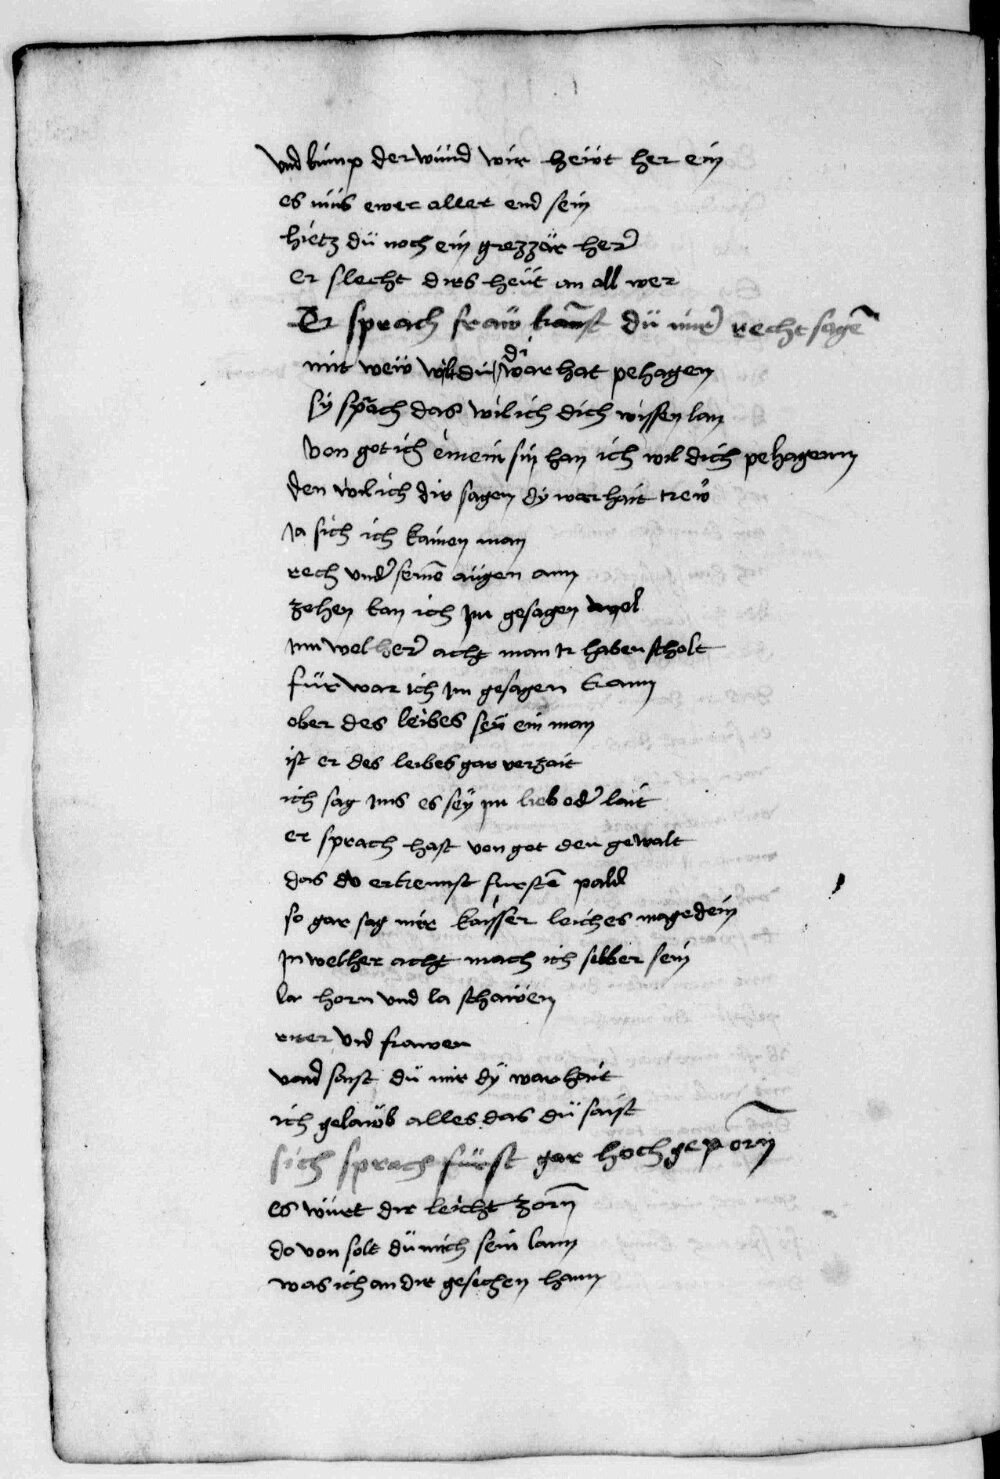 vnd kump der wünd wir heẅt her ein
es müs ewer aller end sein
hietz dü noch ein grezzär her
er slecht dirs heüt an all wer
Er sprach fraẅ kanst dü mir recht sagē
mit weẅ wildu di war hat pehagen
sy sprach das wil ich dich wissen lan
von got ich einein sin han ich wil dich pehagenn
den wil ich dir sagen dy warhait treẅ
ja sich ich kainen man
rech vnder seinē augen ann
zehen kan ich im gesagen
Inn welher acht man ir haben scholt
für war ich im gesagen kann
ober des leibes seÿ ein man
ist er des leibes gar verzait
ich sag ims es seÿ im lieb oder lait
er sprach hast von got den gewalt
das dv erkennst furstē pald
so gar sag mir kaisser leiches magedein
In welher acht mach ich selber sein
la horn vnd la schaẅen
riter vnd frawen
vnd saist dü mir dÿ warhait
ich gelaẅb alles das dü saist
sich sprach fürst gar hoch geporn
es würt dir leicht zorn
do von solt dü mich sein lann
was ich an dir gesechen hann